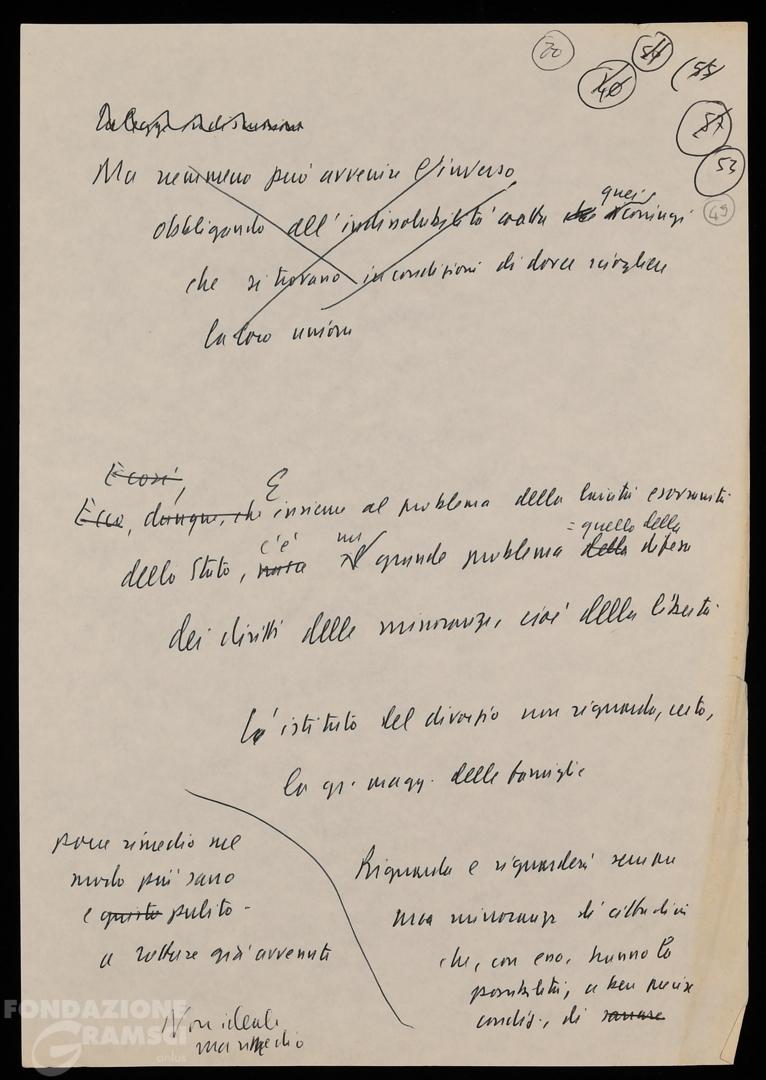 20
40
54
55
57
53
49
Ma nemmeno può avvenire l'inverso
obbligando all'indissolubilità coatta quei coniugi
che si trovano in condizioni di dover sciogliere
la loro unione
È così,
Ecco, dunque, che E insieme al problema della laicità e sovranità
dello Stato, c'è un grande problema = quello della difesa
dei diritti delle minoranze, cioè della libertà
L'istituto del divorzio non riguarda, certo,
la gr. magg. delle famiglie
pone rimedio nel
modo più sano
e giusto pulito -
a rotture già avvenute
Non ideale
ma rimedio
Riguarda e riguarderà sempre
una minoranza di cittadini
che, con esso, hanno la
possibilità, a ben precise
condiz., di sanare
FONDAZIONE
GRAMSCI
onlus